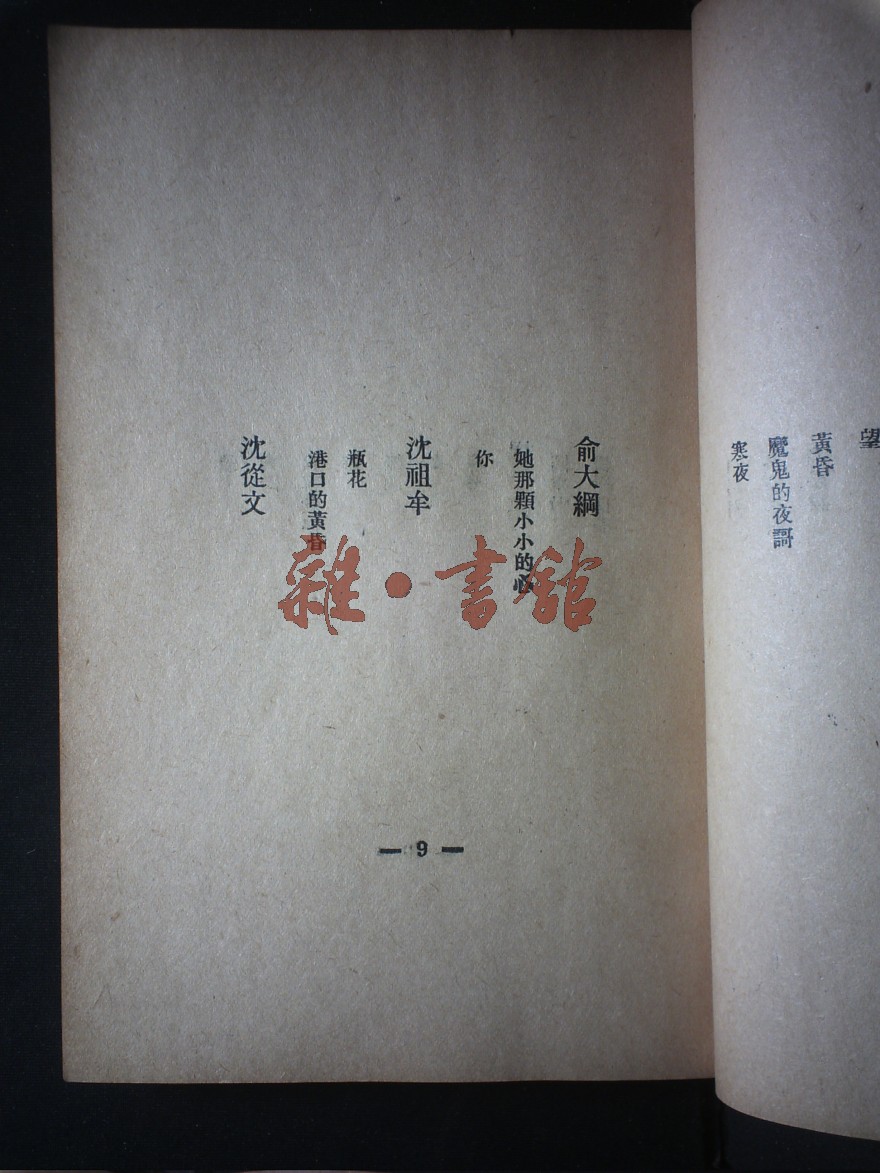 望
黃昏
魔鬼的夜謌
寒夜
俞大綱
她那顆小小的心
你
沈祖牟
瓶花
港口的黃昏
沈從文
— 9 —
雜·書舘